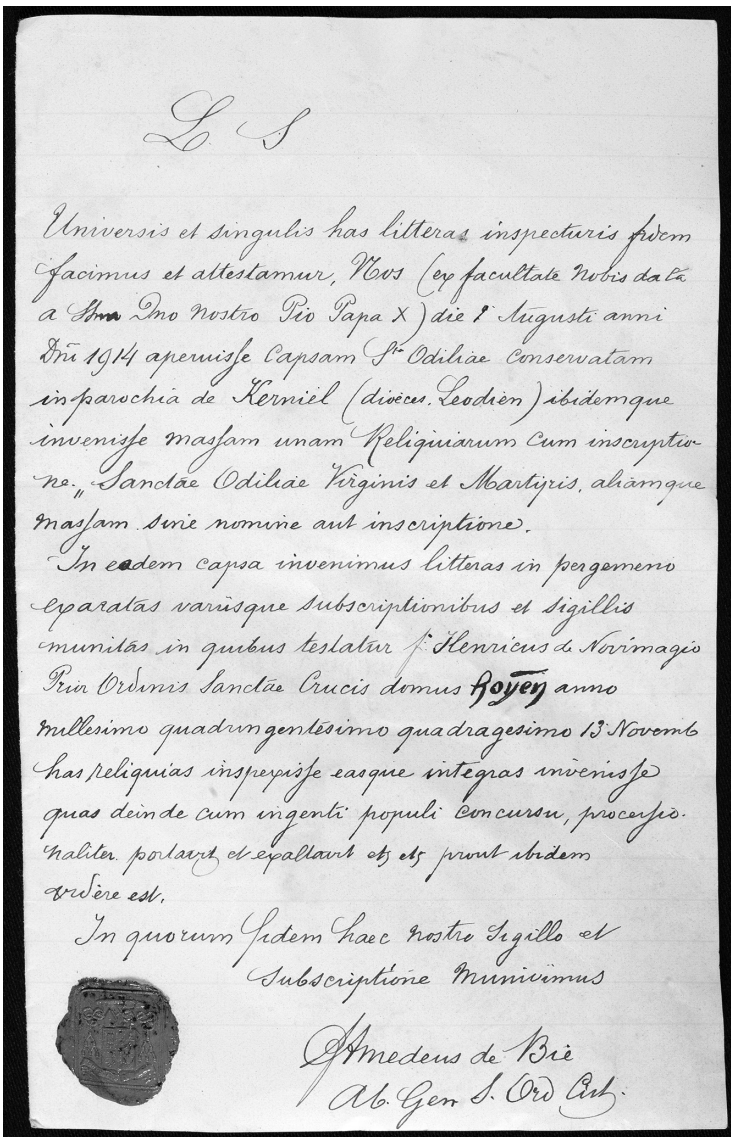 L S
Universis et singulis has litteras inspecturis fidem
facimus et attestamur, Nos (ex facultate nobis data
a Dno nostro Pio Papa X) die Augusti anni
Dñi 1914 aperuisse capsam Stae Odiliae conservatam
in parochia de Kerniel (dioeces. Leodien) ibidemque
invenisse massam unam Reliquiarum cum inscriptio-
ne „ Sanctae Odiliae Virginis et Martyris, aliamque
massam sine nomine aut inscriptione.
In eadem capsa invenimus litteras in pergameno
exaratas variisque subscriptionibus et sigillis
munitas in quibus testatur fr. Henricus de Novimagio
Prior Ordinis Sanctae Crucis domus Royen anno
millesimo quadringentesimo quadragesimo 13 Novemb
has reliquias inspexisse easque integras invenisse
quas deinde cum ingenti populi concursu, processio-
naliter portavit et exaltavit etc etc prout ibidem
videre est.
In quorum fidem haec nostro Sigillo et
subscriptione munivimus
Amedeus de Bie
Ab. Gen S. Ord Cist.